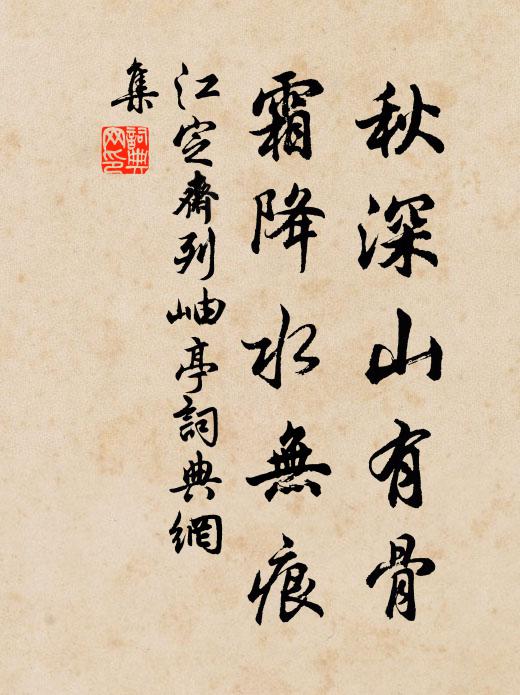 秋深山有骨
霜降水無痕
江定齋列岫亭詞典網
集
詞典網印